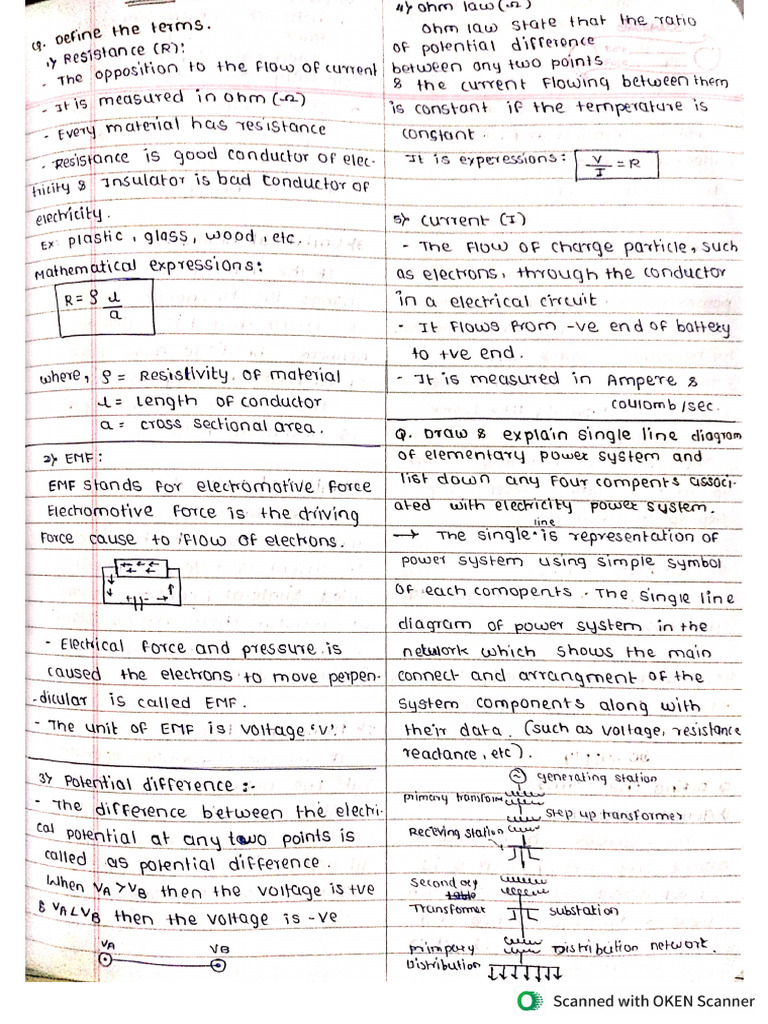 Q. Define the terms.
1) Resistance (R):
- The opposition to the flow of current
- It is measured in ohm (Ω)
- Every material has resistance
- Resistance is good conductor of elec-
tricity & Insulator is bad conductor of
electricity.
Ex: plastic, glass, wood, etc.
Mathematical expressions:
R = ρ l/a
where, ρ = Resistivity of material
l = Length of conductor
a = cross sectional area.
2) EMF:
EMF stands for electromotive force
Electromotive force is the driving
force cause to flow of electrons.
+ -
- Electrical force and pressure is
caused the electrons to move perpen-
dicular is called EMF.
- The unit of EMF is voltage 'V'.
3) Potential difference :-
- The difference between the electri-
cal potential at any two points is
called as potential difference.
When VA>VB then the voltage is +ve
& VA<VB then the voltage is -ve
VA VB
4) ohm law (Ω)
ohm law state that the ratio
of potential difference
between any two points
& the current flowing between them
is constant if the temperature is
constant.
It is experessions: V/I = R
5) Current (I)
- The flow of charge particle, such
as electrons, through the conductor
in a electrical circuit.
- It flows from -ve end of battery
to +ve end.
- It is measured in Ampere &
coulomb/sec.
Q. Draw & explain single line diagram
of elementary power system and
list down any four compents associ-
ated with electricity power system.
→ The single line is representation of
power system using simple symbol
of each comopents. The single line
diagram of power system in the
network which shows the main
connect and arrangment of the
system components along with
their data. (such as voltage, resistance
reactance, etc).
generating station
primary transfome
step up transformer
Receving station
secondary
Transformer
substation
primpary
Distribution
Distribution network.
Scanned with OKEN Scanner